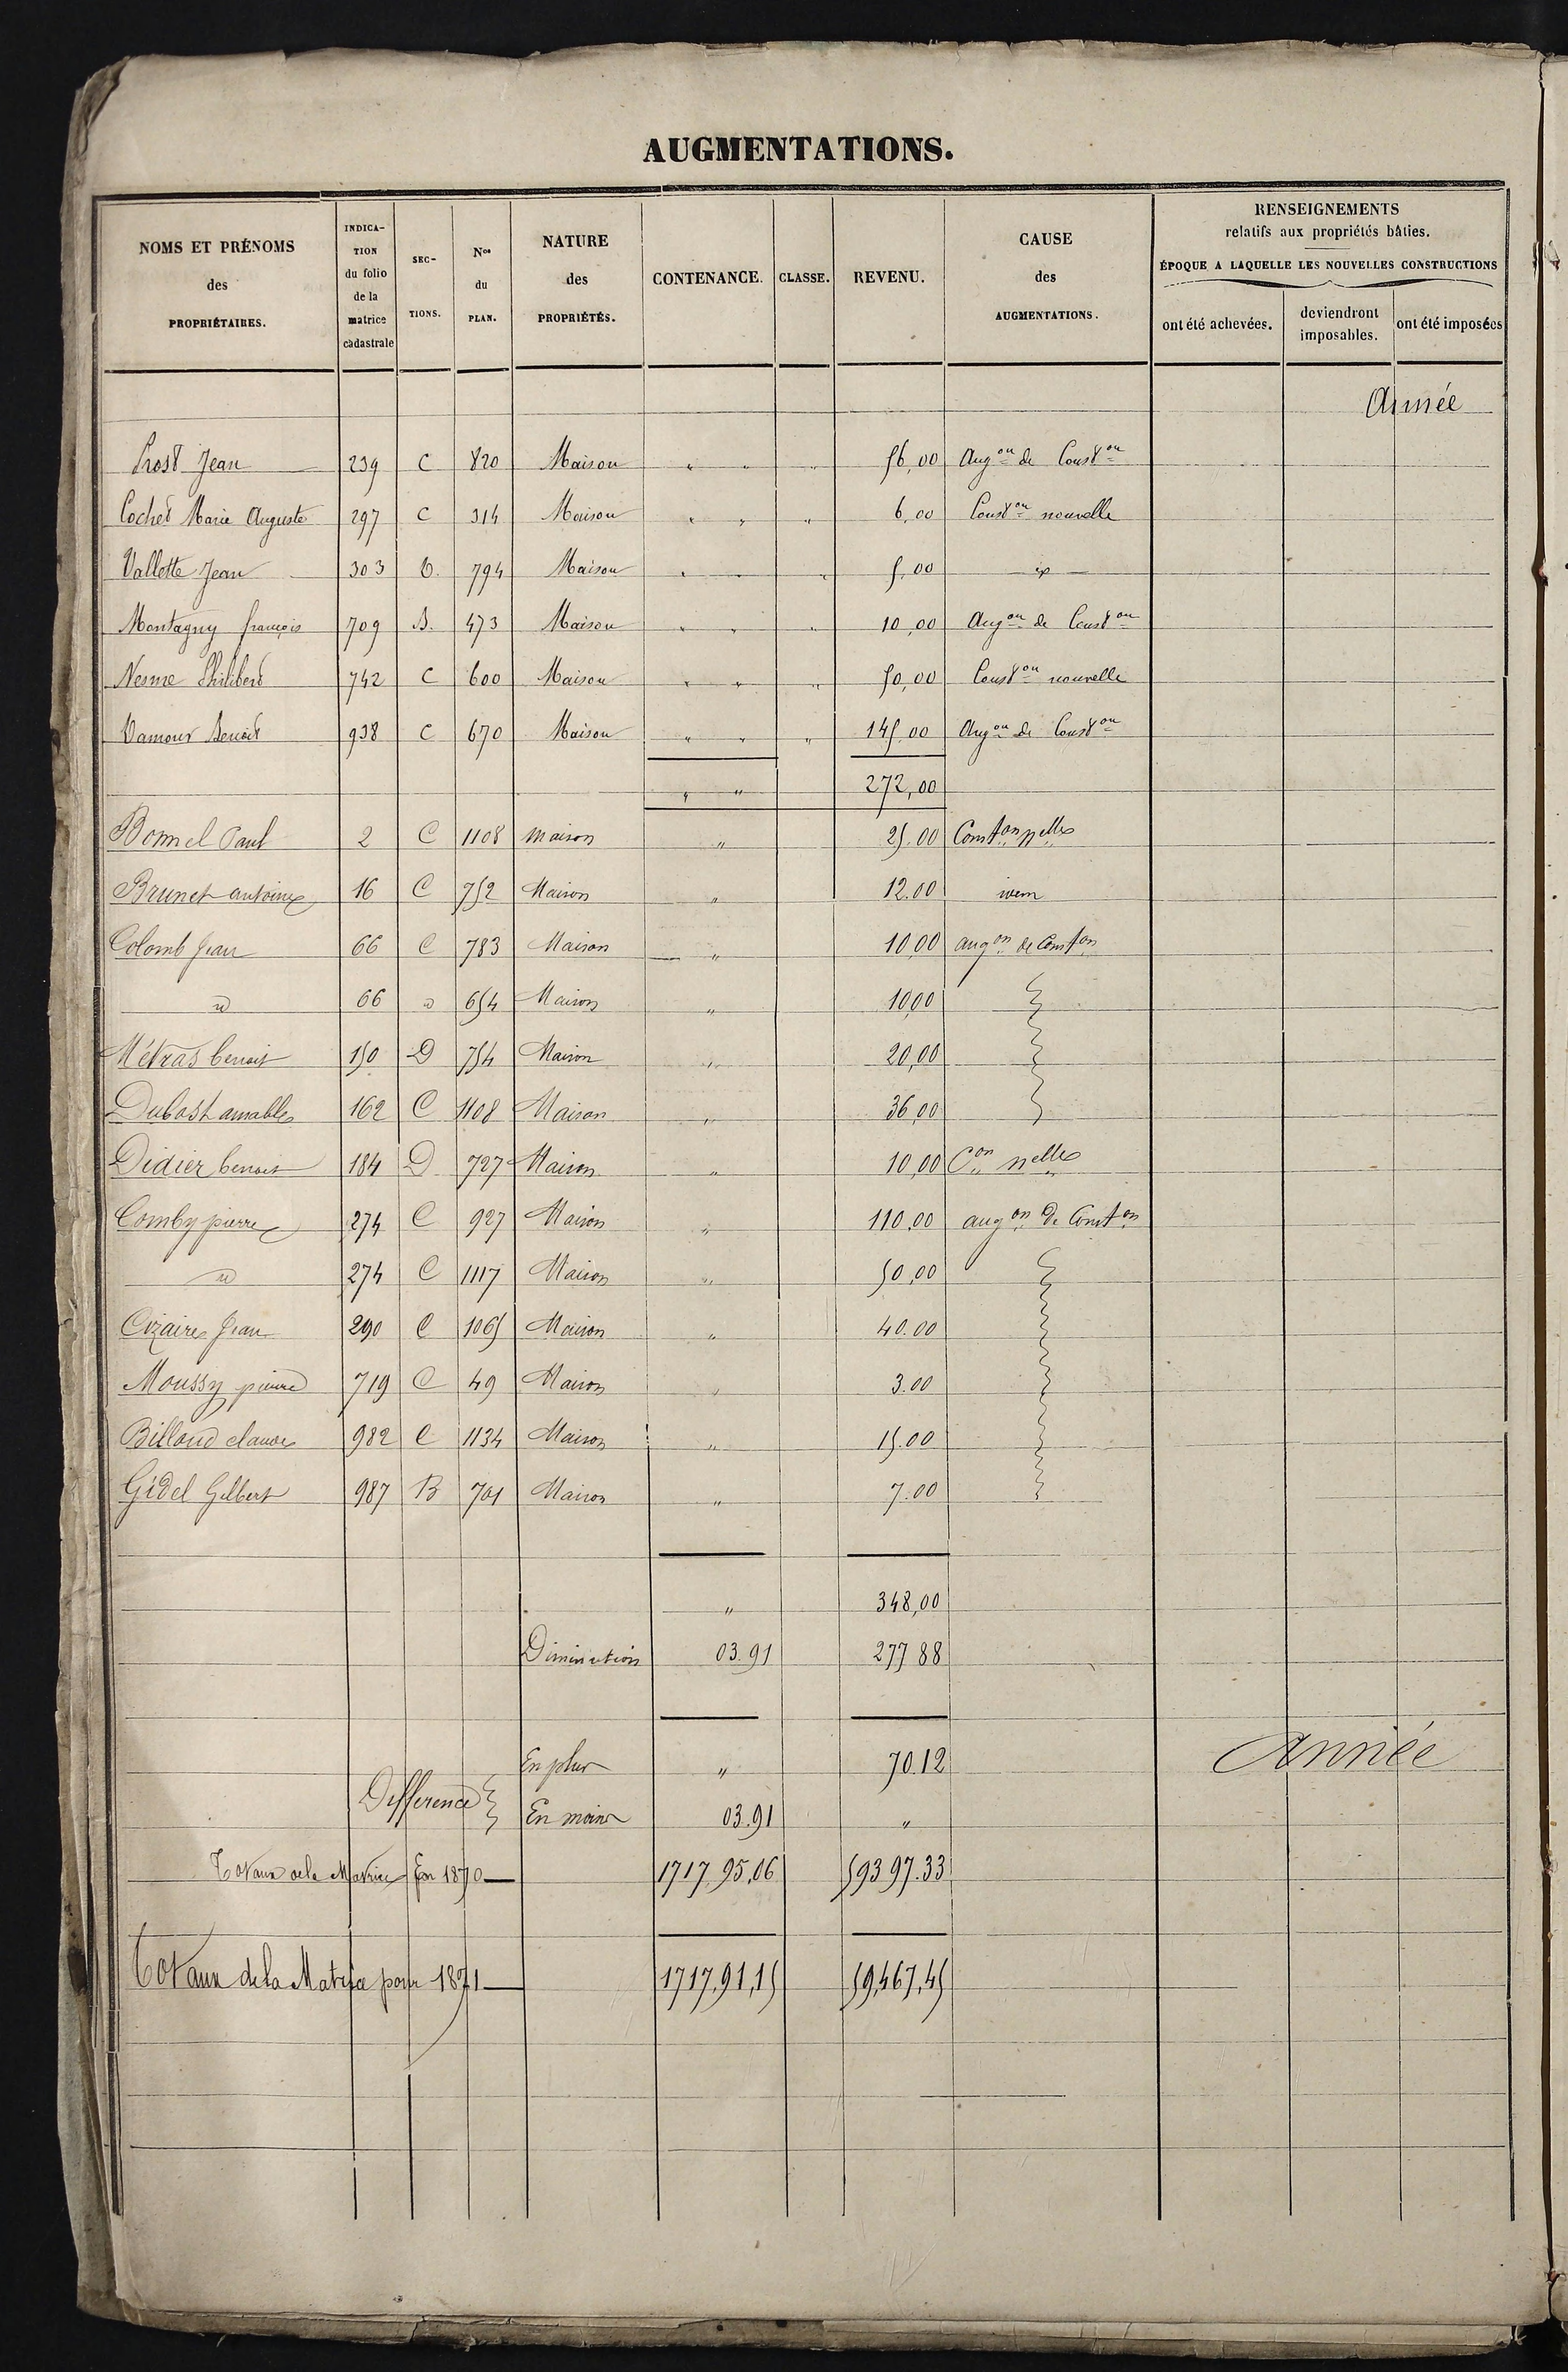 AUGMENTATIONS.
NOMS ET PRÉNOMS des PROPRIÉTAIRES. | INDICA-TION du folio de la matrice cadastrale | SEC-TIONS. | Nos du PLAN. | NATURE des PROPRIÉTÉS. | CONTENANCE. | CLASSE. | REVENU. | CAUSE des AUGMENTATIONS. | RENSEIGNEMENTS relatifs aux propriétés bâties.
ÉPOQUE A LAQUELLE LES NOUVELLES CONSTRUCTIONS
ont été achevées. | deviendront imposables. | ont été imposées
Année
Prost Jean 239 C 820 Maison " " " 56,00 Augon de Conston
Cochet Marie Auguste 297 C 314 Maison " " " 6,00 Conston nouvelle
Vallette Jean 303 D. 794 Maison " " " 5,00 id
Montagny françois 709 B. 473 Maison " " " 10,00 Augon de Conston
Nesme Philibert 742 C 600 Maison " " " 50,00 Conston nouvelle
Damour Benoit 938 C 670 Maison " " " 145,00 Augon de Conston
" " 272,00
Bonnel Paul 2 C 1108 maison " 25.00 Conston nelle
Brunet antoine 16 C 752 Maison " 12.00 idem
Colomb Jean 66 C 783 Maison " 10,00 augon de Conston
id 66 id 654 Maison " 10,00
Métras benoit 150 D 754 Maison " 20,00
Dubost amable 162 C 1108 Maison " 36,00
Didier benoit 184 D 727 Maison " 10,00 Con nelle
Comby pierre 274 C 927 Maison " 110,00 augon de Conston
id 274 C 1117 Maison " 50,00
Cizaire Jean 290 C 1065 Maison " 40.00
Moussy pierre 719 C 49 Maison " 3.00
Billaud claude 982 C 1134 Maison " 15.00
Gidel Gilbert 987 B 701 Maison " 7.00
" 348,00
Diminution 03.91 277 88
En plus " 70.12
Année
Difference
En moins 03.91 "
Totaux de la Matrice En 1870 1717,95,06 59397.33
Totaux de la Matrice pour 1871 1717,91,15 59,467,45